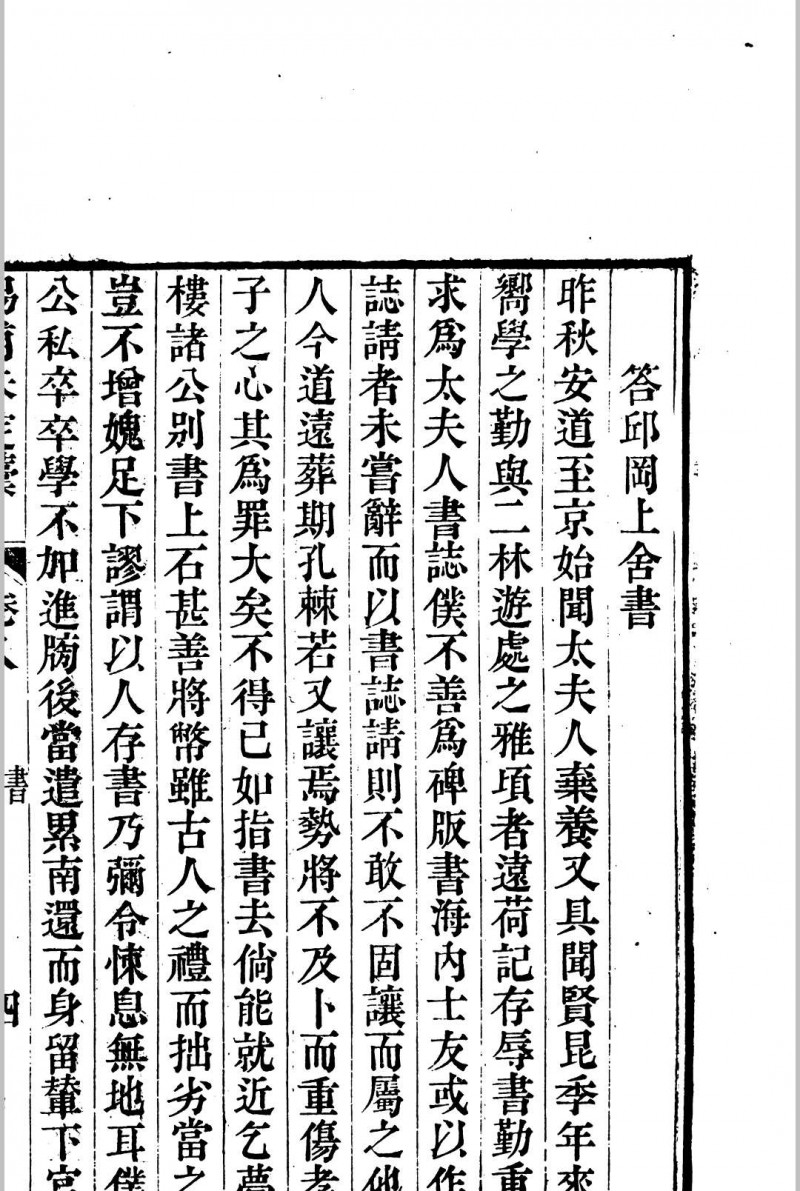 答邱岡上舍書
昨秋安道至京始聞太夫人棄養又具聞賢昆季年來
嚮學之勤與二林遊處之雅頃者遠荷記存辱書勤重
求爲太夫人書誌僕不善爲碑版書海內士友或以作
誌請者未嘗辭而以書誌請則不敢不固讓而屬之他
人今道遠葬期孔棘若又讓焉勢將不及卜而重傷孝
子之心其爲罪大矣不得已如指書去倘能就近乞夢
樓諸公別書上石甚善將幣雖古人之禮而拙劣當之
豈不增媿足下謬謂以人存書乃彌令悚息無地耳僕
公私卒卒學不加進牓後當遣累南還而身留輦下宮
未定稾
卷八
書
四